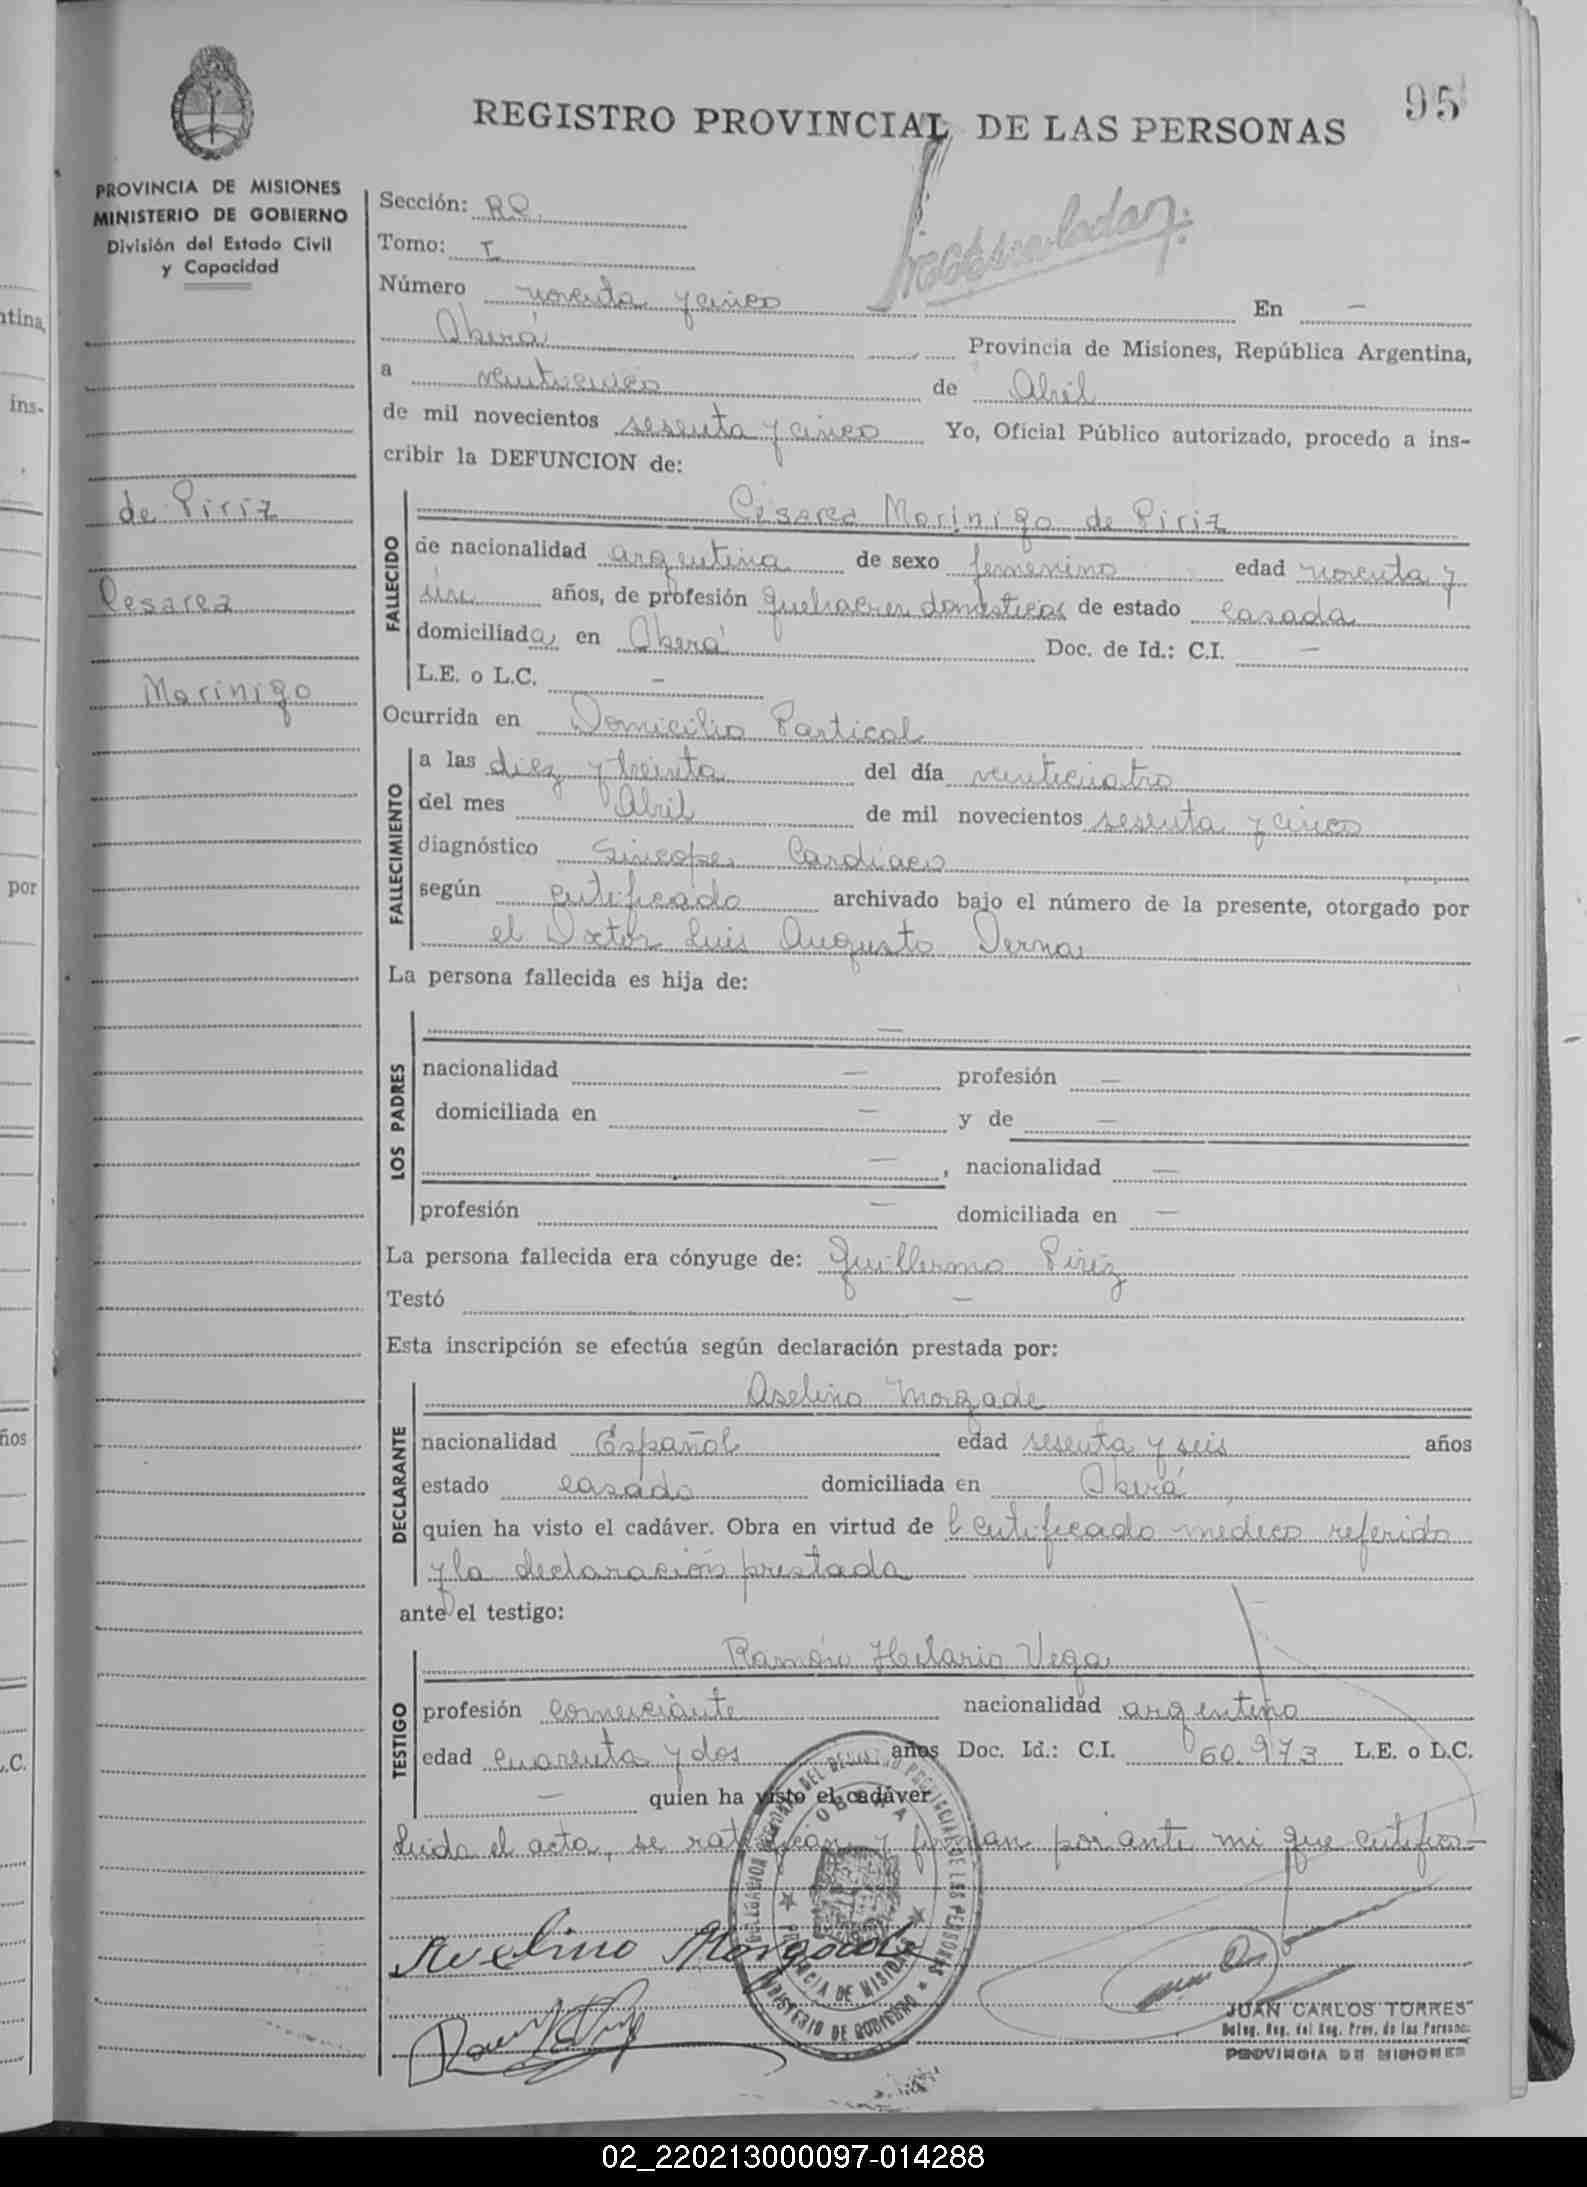 95
REGISTRO PROVINCIAL DE LAS PERSONAS
PROVINCIA DE MISIONES
MINISTERIO DE GOBIERNO
División del Estado Civil
y Capacidad
de Piriz
Cesarea
Marinigo
Sección: RP.
Tomo: I
Número noventa y cinco En —
Oberá Provincia de Misiones, República Argentina,
a veinticinco de Abril
de mil novecientos sesenta y cinco Yo, Oficial Público autorizado, procedo a ins-
cribir la DEFUNCION de:
FALLECIDO
Cesarea Marinigo de Piriz
de nacionalidad argentina de sexo femenino edad noventa y
un años, de profesión quehaceres domésticos de estado casada
domiciliada en Oberá Doc. de Id.: C.I. —
L.E. o L.C. —
Ocurrida en Domicilio Partical
FALLECIMIENTO
a las diez y treinta del día veinticuatro
del mes Abril de mil novecientos sesenta y cinco
diagnóstico Sincope Cardiaco
según certificado archivado bajo el número de la presente, otorgado por
el Doctor Luis Augusto Derna
La persona fallecida es hija de:
LOS PADRES
—
nacionalidad — profesión —
domiciliada en — y de —
— , nacionalidad —
profesión — domiciliada en —
La persona fallecida era cónyuge de: Guillermo Piriz
Testó —
Esta inscripción se efectúa según declaración prestada por:
DECLARANTE
Aselino Morgade
nacionalidad Español edad sesenta y seis años
estado casado domiciliada en Oberá
quien ha visto el cadáver. Obra en virtud de l certificado medico referido
y la declaración prestada
ante el testigo:
TESTIGO
Ramón Hilario Vega
profesión comerciante nacionalidad argentino
edad cuarenta y dos años Doc. Id.: C.I. 60.973 L.E. o L.C.
— quien ha visto el cadáver
Leida el acta, se ratifican y firman por ante mi que certifico—
Avelino Morgade
DELEGACION REGIONAL DEL REGISTRO PROVINCIAL DE LAS PERSONAS
OBERA
PROVINCIA DE MISIONES
MINISTERIO DE GOBIERNO
JUAN CARLOS TORRES
Deleg. Reg. del Reg. Prov. de las Personas
PROVINCIA DE MISIONES
ntina,
ins-
por
ños
.C.
02_220213000097-014288